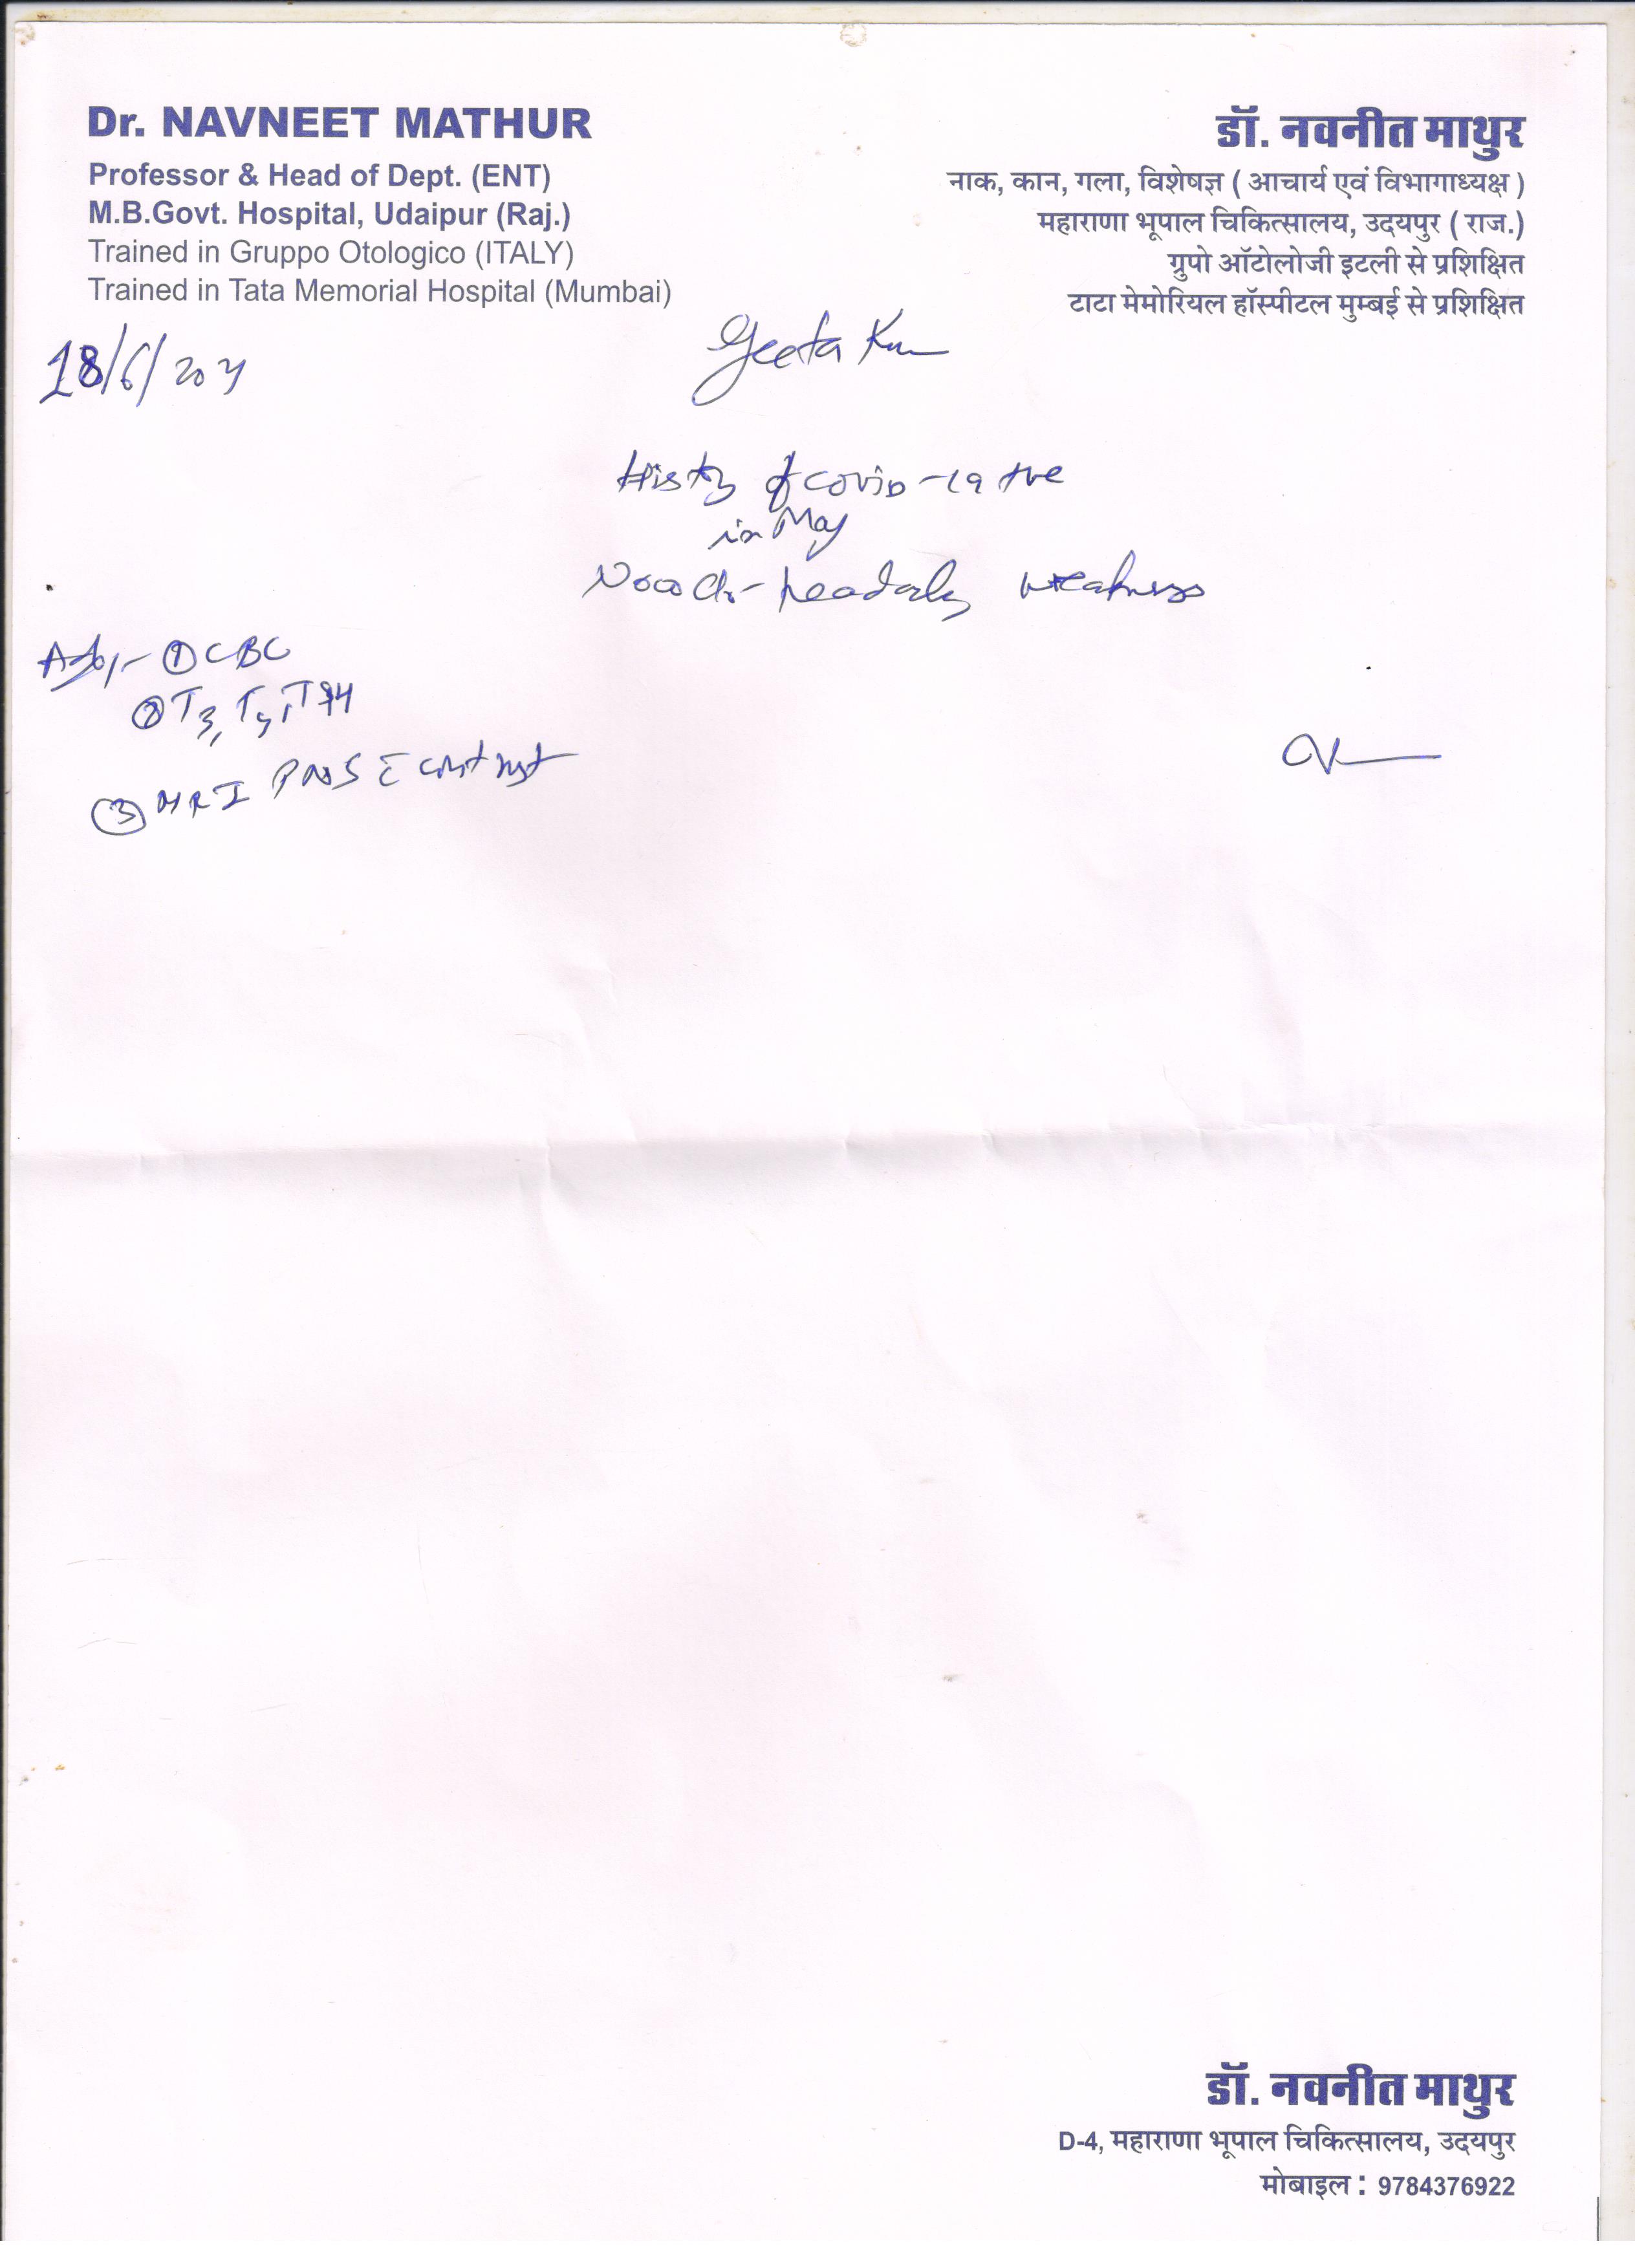 Dr. NAVNEET MATHUR
Professor & Head of Dept. (ENT)
M.B.Govt. Hospital, Udaipur (Raj.)
Trained in Gruppo Otologico (ITALY)
Trained in Tata Memorial Hospital (Mumbai)
डॉ. नवनीत माथुर
नाक, कान, गला, विशेषज्ञ ( आचार्य एवं विभागाध्यक्ष )
महाराणा भूपाल चिकित्सालय, उदयपुर ( राज.)
ग्रुपो ऑटोलोजी इटली से प्रशिक्षित
टाटा मेमोरियल हॉस्पीटल मुम्बई से प्रशिक्षित
18/6/2021
Geeta
History of covid-19 +ve
in May
Now C/o- headache weakness
① CBC
② T3, T4,
③ MRI PNS c̄ contrast
डॉ. नवनीत माथुर
D-4, महाराणा भूपाल चिकित्सालय, उदयपुर
मोबाइल : 9784376922